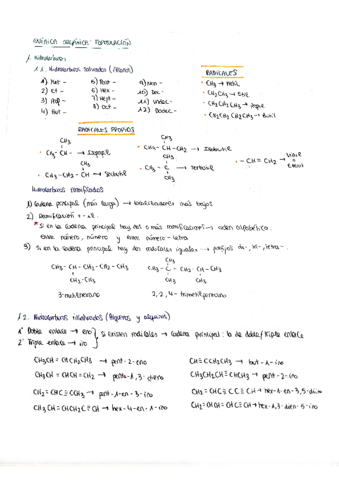 QUÍMICA ORGÁNICA FORMULACIÓN
1. Hidrocarburos
1.1. Hidrocarburos saturados (Alcanos)
1) Met -
2) Et -
3) Prop -
4) But -
5) Pent -
6) Hex -
7) Hept -
8) Oct -
9) Non -
10) Dec -
11) Undec -
12) Dodec -
RADICALES
CH₃ → Metil
CH₂CH₃ → Etil
CH₂CH₂CH₃ → Propil
CH₂CH₂CH₂CH₃ → Butil
RADICALES PROPIOS
CH₃
CH₃ - CH - → Isopropil
CH₃
CH₃ - CH₂ - CH → Secbutil
CH₃
CH₃ - CH - CH₂ → Isobutil
CH₃
CH₃ - C -
CH₃
- CH = CH₂ →
Hidrocarburos ramificados
1) Cadena principal (más larga) → localizadores más bajos
2) Ramificación → - il
* Si en la cadena principal hay dos o más ramificaciones → orden alfabético.
Entre número, número y entre número - letra
3) Si en la cadena principal hay dos radicales iguales → prefijos di-, tri-, tetra-
CH₃ - CH - CH₂ - CH₂ - CH₃
CH₂ - CH₃
3-metilhexano
CH₃
CH₃ - C - CH₂ - CH - CH₃
CH₃ CH₃
2, 2, 4 - trimetilpentano
1.2. Hidrocarburos insaturados (Alquenos y alquinos)
1º Doble enlace → eno
2º Triple enlace → ino
Si existen radicales → cadena principal: la de doble/triple enlace
CH₃CH = CHCH₂CH₃ → pent - 2 - eno
CH₃CH = CHCH = CH₂ → penta - 1, 3 - dieno
CH₂ = CHC ≡ CCH₃ → pent - 1 - en - 3 - ino
CH₃CH = CHCH₂C ≡ CH → hex - 4 - en - 1 - ino
CH ≡ CCH₂CH₃ → but - 1 - ino
pent - 2 - ino
CH₂ = CHC ≡ CC ≡ CH → hex - 1 - en - 3, 5 - diino
hex - 1, 3 - dien - 5 - ino